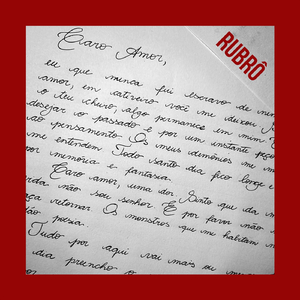 RUBRÔ
Claro Amor,
eu que nunca fui escravo de
amor, em cativeiro você me deixou
o teu cheiro, algo permanece em mim
desejar o passado e por um instante
ao pensamento. Os meus demônios me
me entendem. Todo santo dia fico longe e
por memória e fantasia.
Claro amor, uma dor. Sinto que da
não sou senhor. E por favor não
retornar. Os monstros que me habitam
poesia.
Tudo por aqui vai mais ou
dia preencho o